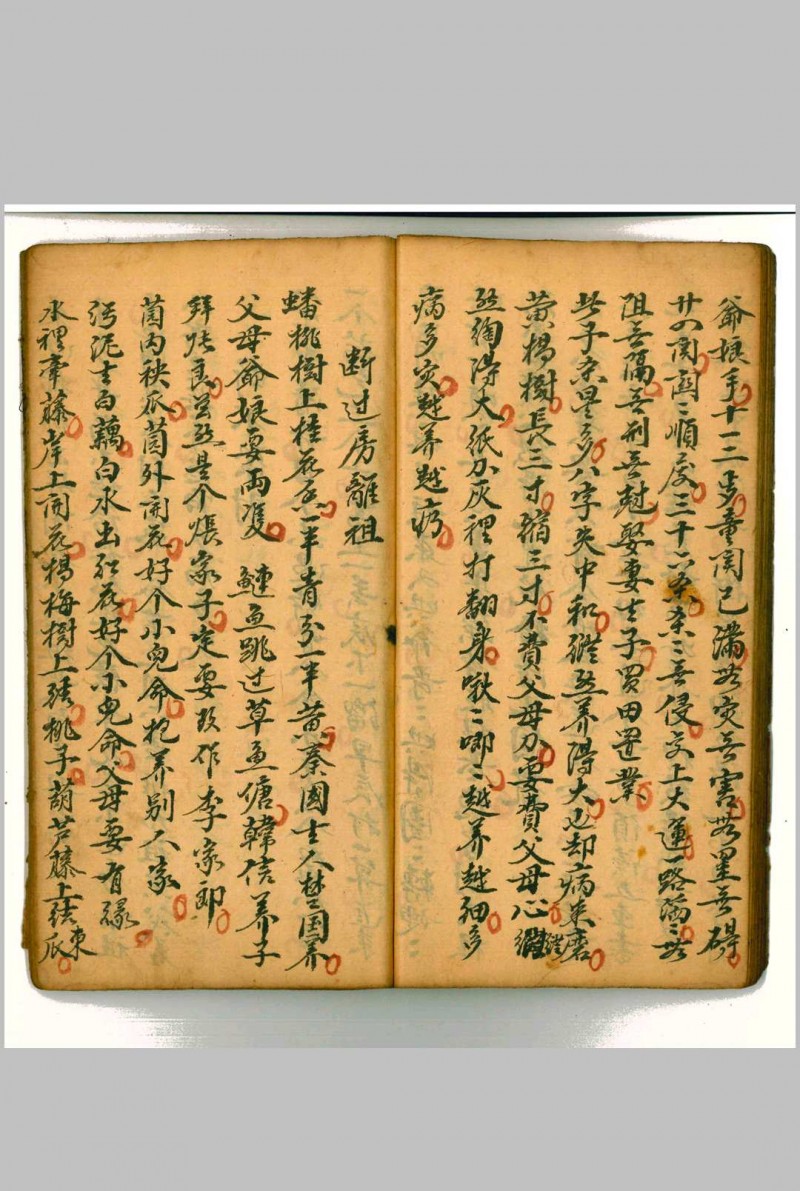 爺娘手十一三多童関已滿無灾無害無星無碍
廿四関関〻順度三十六煞煞〻無侵交上大運一路滿〻無
阻無隔無刑無尅娶妻生子買田置業
此子煞星多八字失中和縱然养得大也却病来磨
黄楊樹長三寸縮三寸不費父母力要費父母心縱
然綯得大紙如灰裡打翻身啾〻唧〻越养越細多
病多灾越养越疬
断过房離祖
蟠桃樹上桂花香一半青分一半黄秦國生人楚国养
父母爺娘要両雙 鰱魚跳过草魚塘韓信养子
拜张良㒰然是个張家子定要改作李家郎
菌内秧瓜菌外開花好个小兒命抱养别人家
污泥生白藕白水出红花好个小兒命父母要有緣
水裡牽藤岸上開花楊梅樹上結桃子葫芦藤上結東瓜